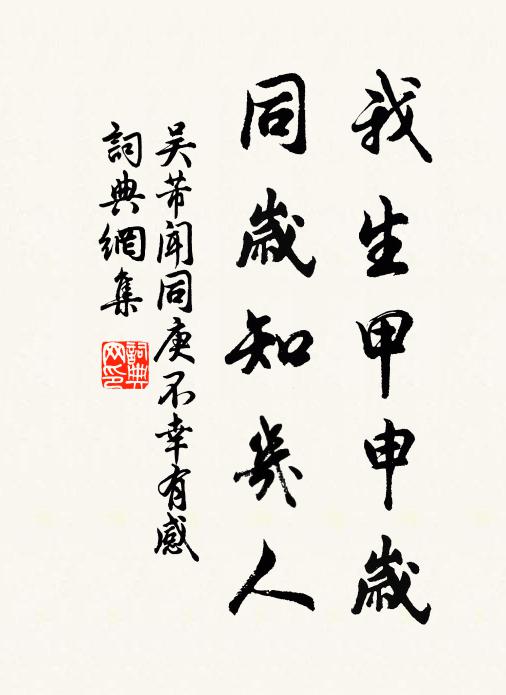 我生甲申歲
同歲知幾人
吴芾聞同庚不幸有感
詞典網集
詞典网印